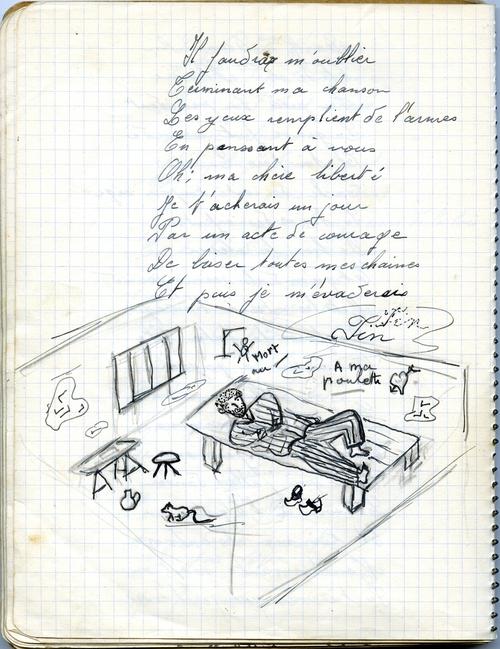 Il faudra m'oublier
Terminant ma chanson
Les yeux remplient de l'armes
En penssant à vous
Oh! ma chère liberté
Je t'acherais un jour
Par un acte de courage
De briser toutes mes chaines
Et puis je m'évaderais
Fin
Fin
Mort
A ma
poulette